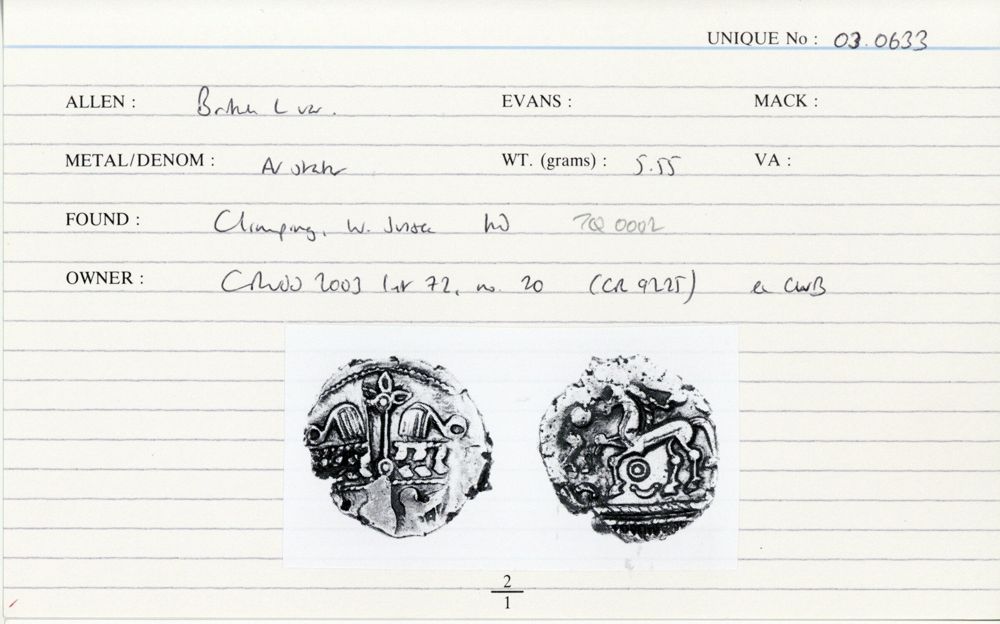 UNIQUE No : 03.0633
ALLEN : British L var. EVANS : MACK :
METAL/DENOM : AV stater WT. (grams) : 5.55 VA :
FOUND : Climping, W. Sussex MD TQ 0002
OWNER : 2003 list 72, no. 20 (CR 9225) ex CWB
2
1